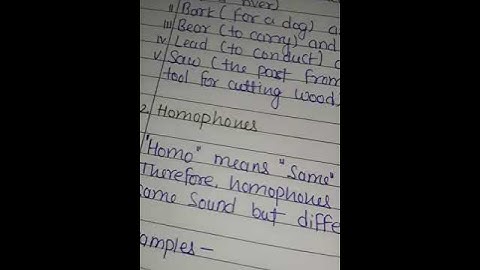 over)
ii) Bark (for a dog) a
iii) Bear (to carry) and
iv) Lead (to conduct)
v) Saw (the past from
tool for cutting wood)
2. Homophones
"Homo" means "Same"
Therefore, homophones
same sound but diffe
amples-